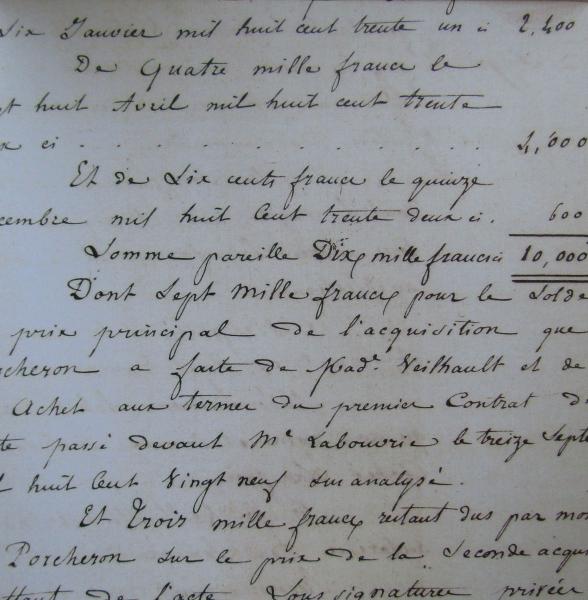 Six Janvier mil huit cent trente un ci 2,400
De Quatre mille francs le
gt huit Avril mil huit cent trente
x ci . . . . . . . . . . . 4,000
Et de Six cents francs le quinze
cembre mil huit Cent trente deux ci. 600
Somme pareille Dix mille francs ci 10,000
Dont Sept Mille francs pour le Solde
prix principal de l'acquisition que
cheron a faite de Made. Veilhault et de
Achet aux termes du premier Contrat d
te passé devant Me Labouvrie le treize Septe
l huit Cent Vingt neuf Sus analysé.
Et Trois mille francs restant dus par mon
Porcheron Sur le prix de la Seconde acqui
ltant de l'acte Sous Signatures privées